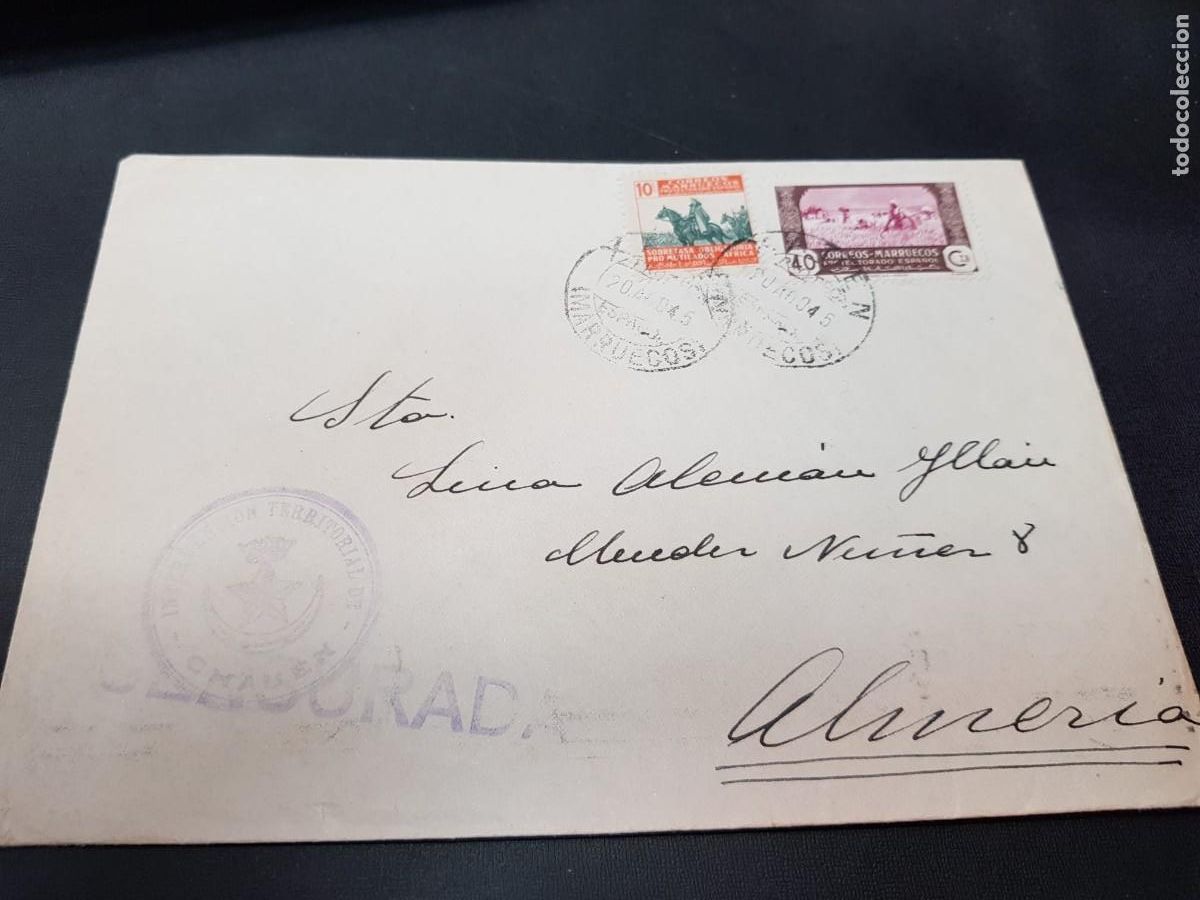 todocoleccion
10
CORREOS
MARRUECOS
SOBRETASA OBLIGATORIA
PRO MUTILADOS AFRICA
40 CORREOS-MARRUECOS Cts
PROTECTORADO ESPAÑOL
MARRUECOS
Sta.
Lina Alemán Yllán
Mendez Nuñez 8
Almeria
TERRITORIAL DE
CENSURADA